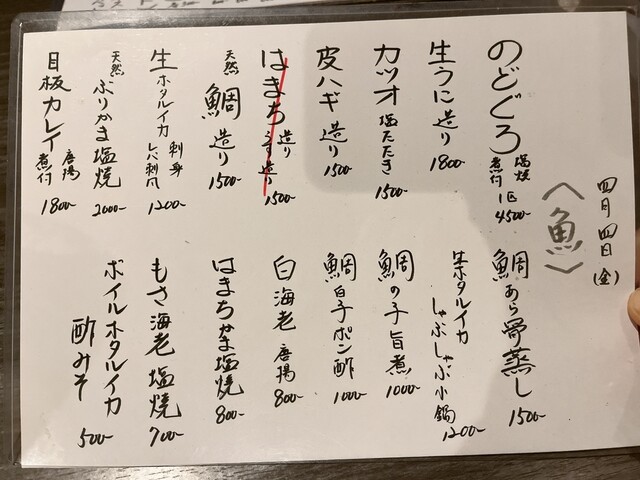 四月四日(金)
〈魚〉
のどぐろ 塩焼 煮付 1匹 4500-
生うに造り 1800-
カツオ 塩たたき 1500-
皮ハギ造り 1500-
はまち 造り うす造り 1500-
天然 鯛造り 1500-
生ホタルイカ 刺身 レバ刺風 1200-
天然 ぶりかま塩焼 2000-
目板カレイ 唐揚 煮付 1800-
鯛あら骨蒸し 1500-
生ホタルイカ しゃぶしゃぶ小鍋 1200-
鯛の子旨煮 1000-
鯛白子ポン酢 1000-
白海老 唐揚 800-
はまちかま塩焼 800-
もさ海老塩焼 700-
ボイルホタルイカ 酢みそ 500-